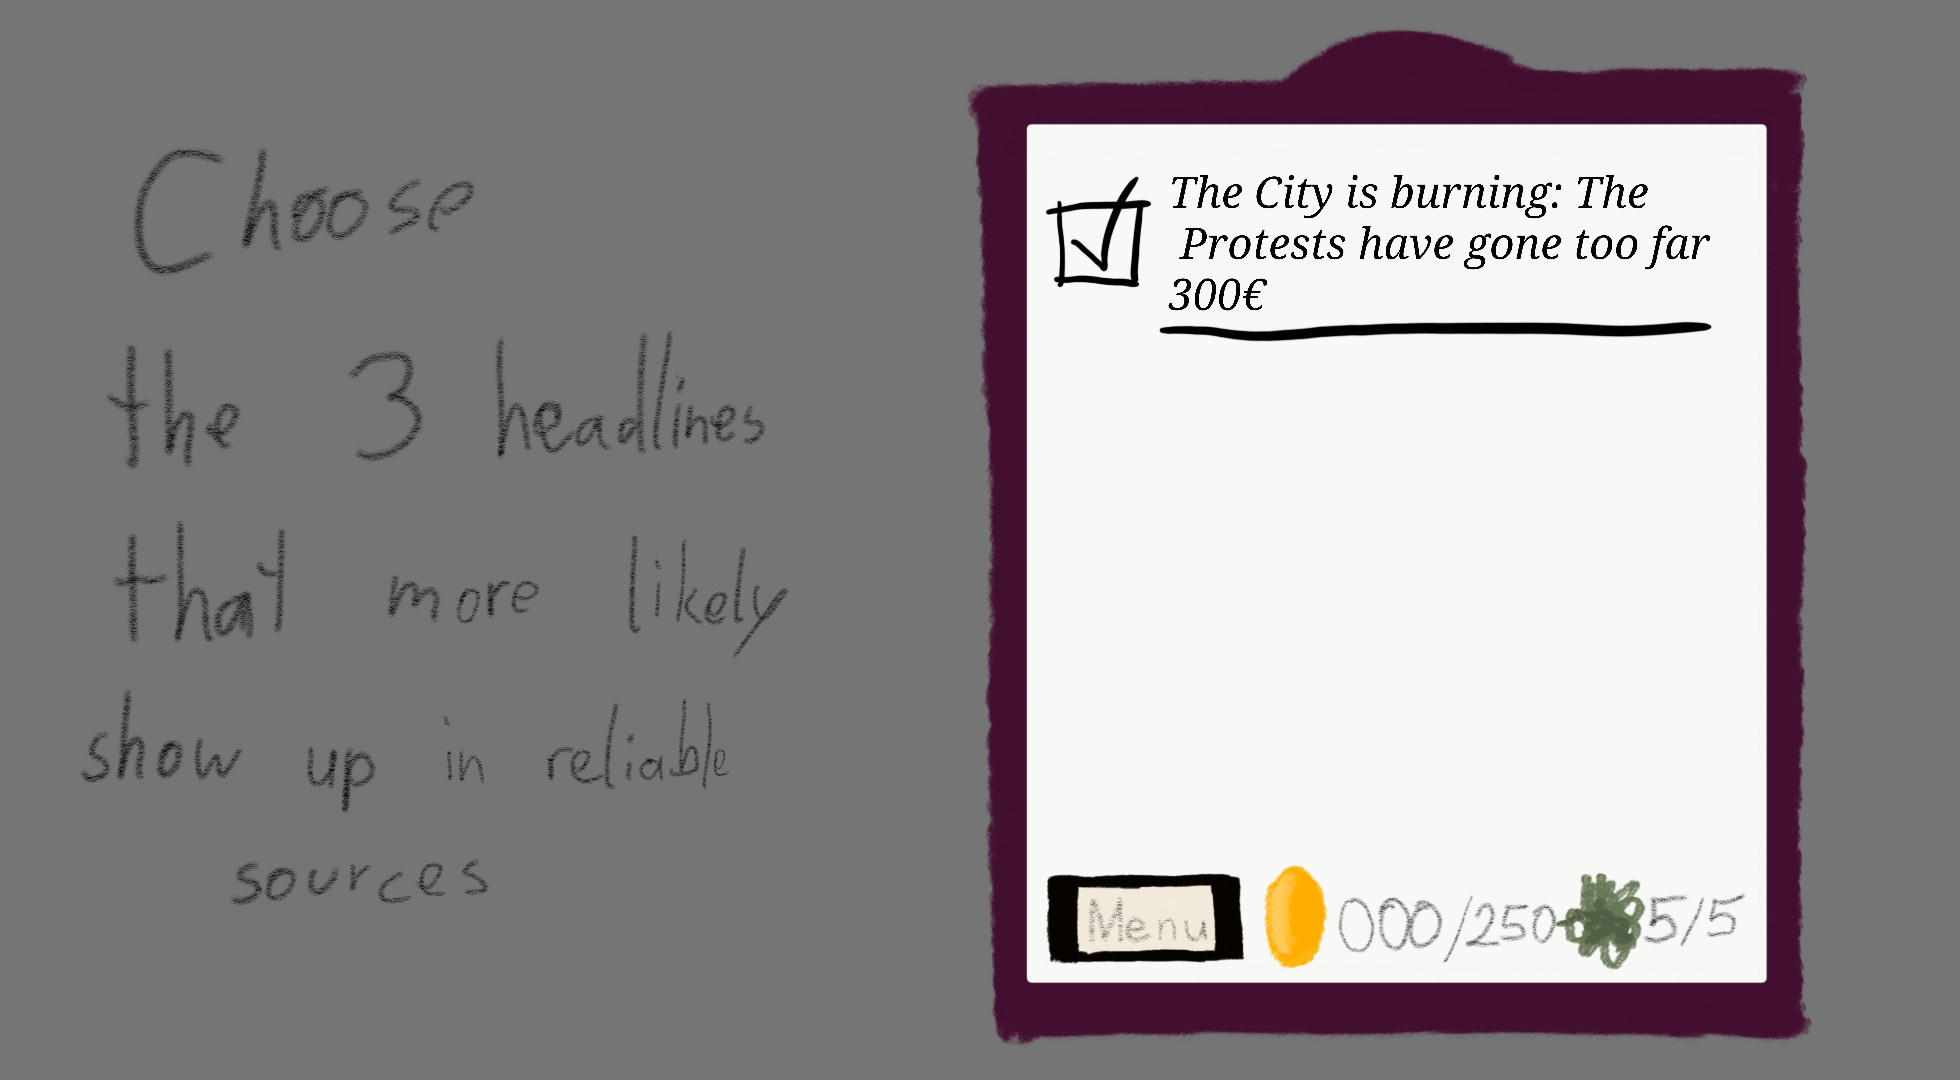 Choose
the 3 headlines
that more likely
show up in reliable
sources
The City is burning: The
Protests have gone too far
300€
Menu 000/250 5/5